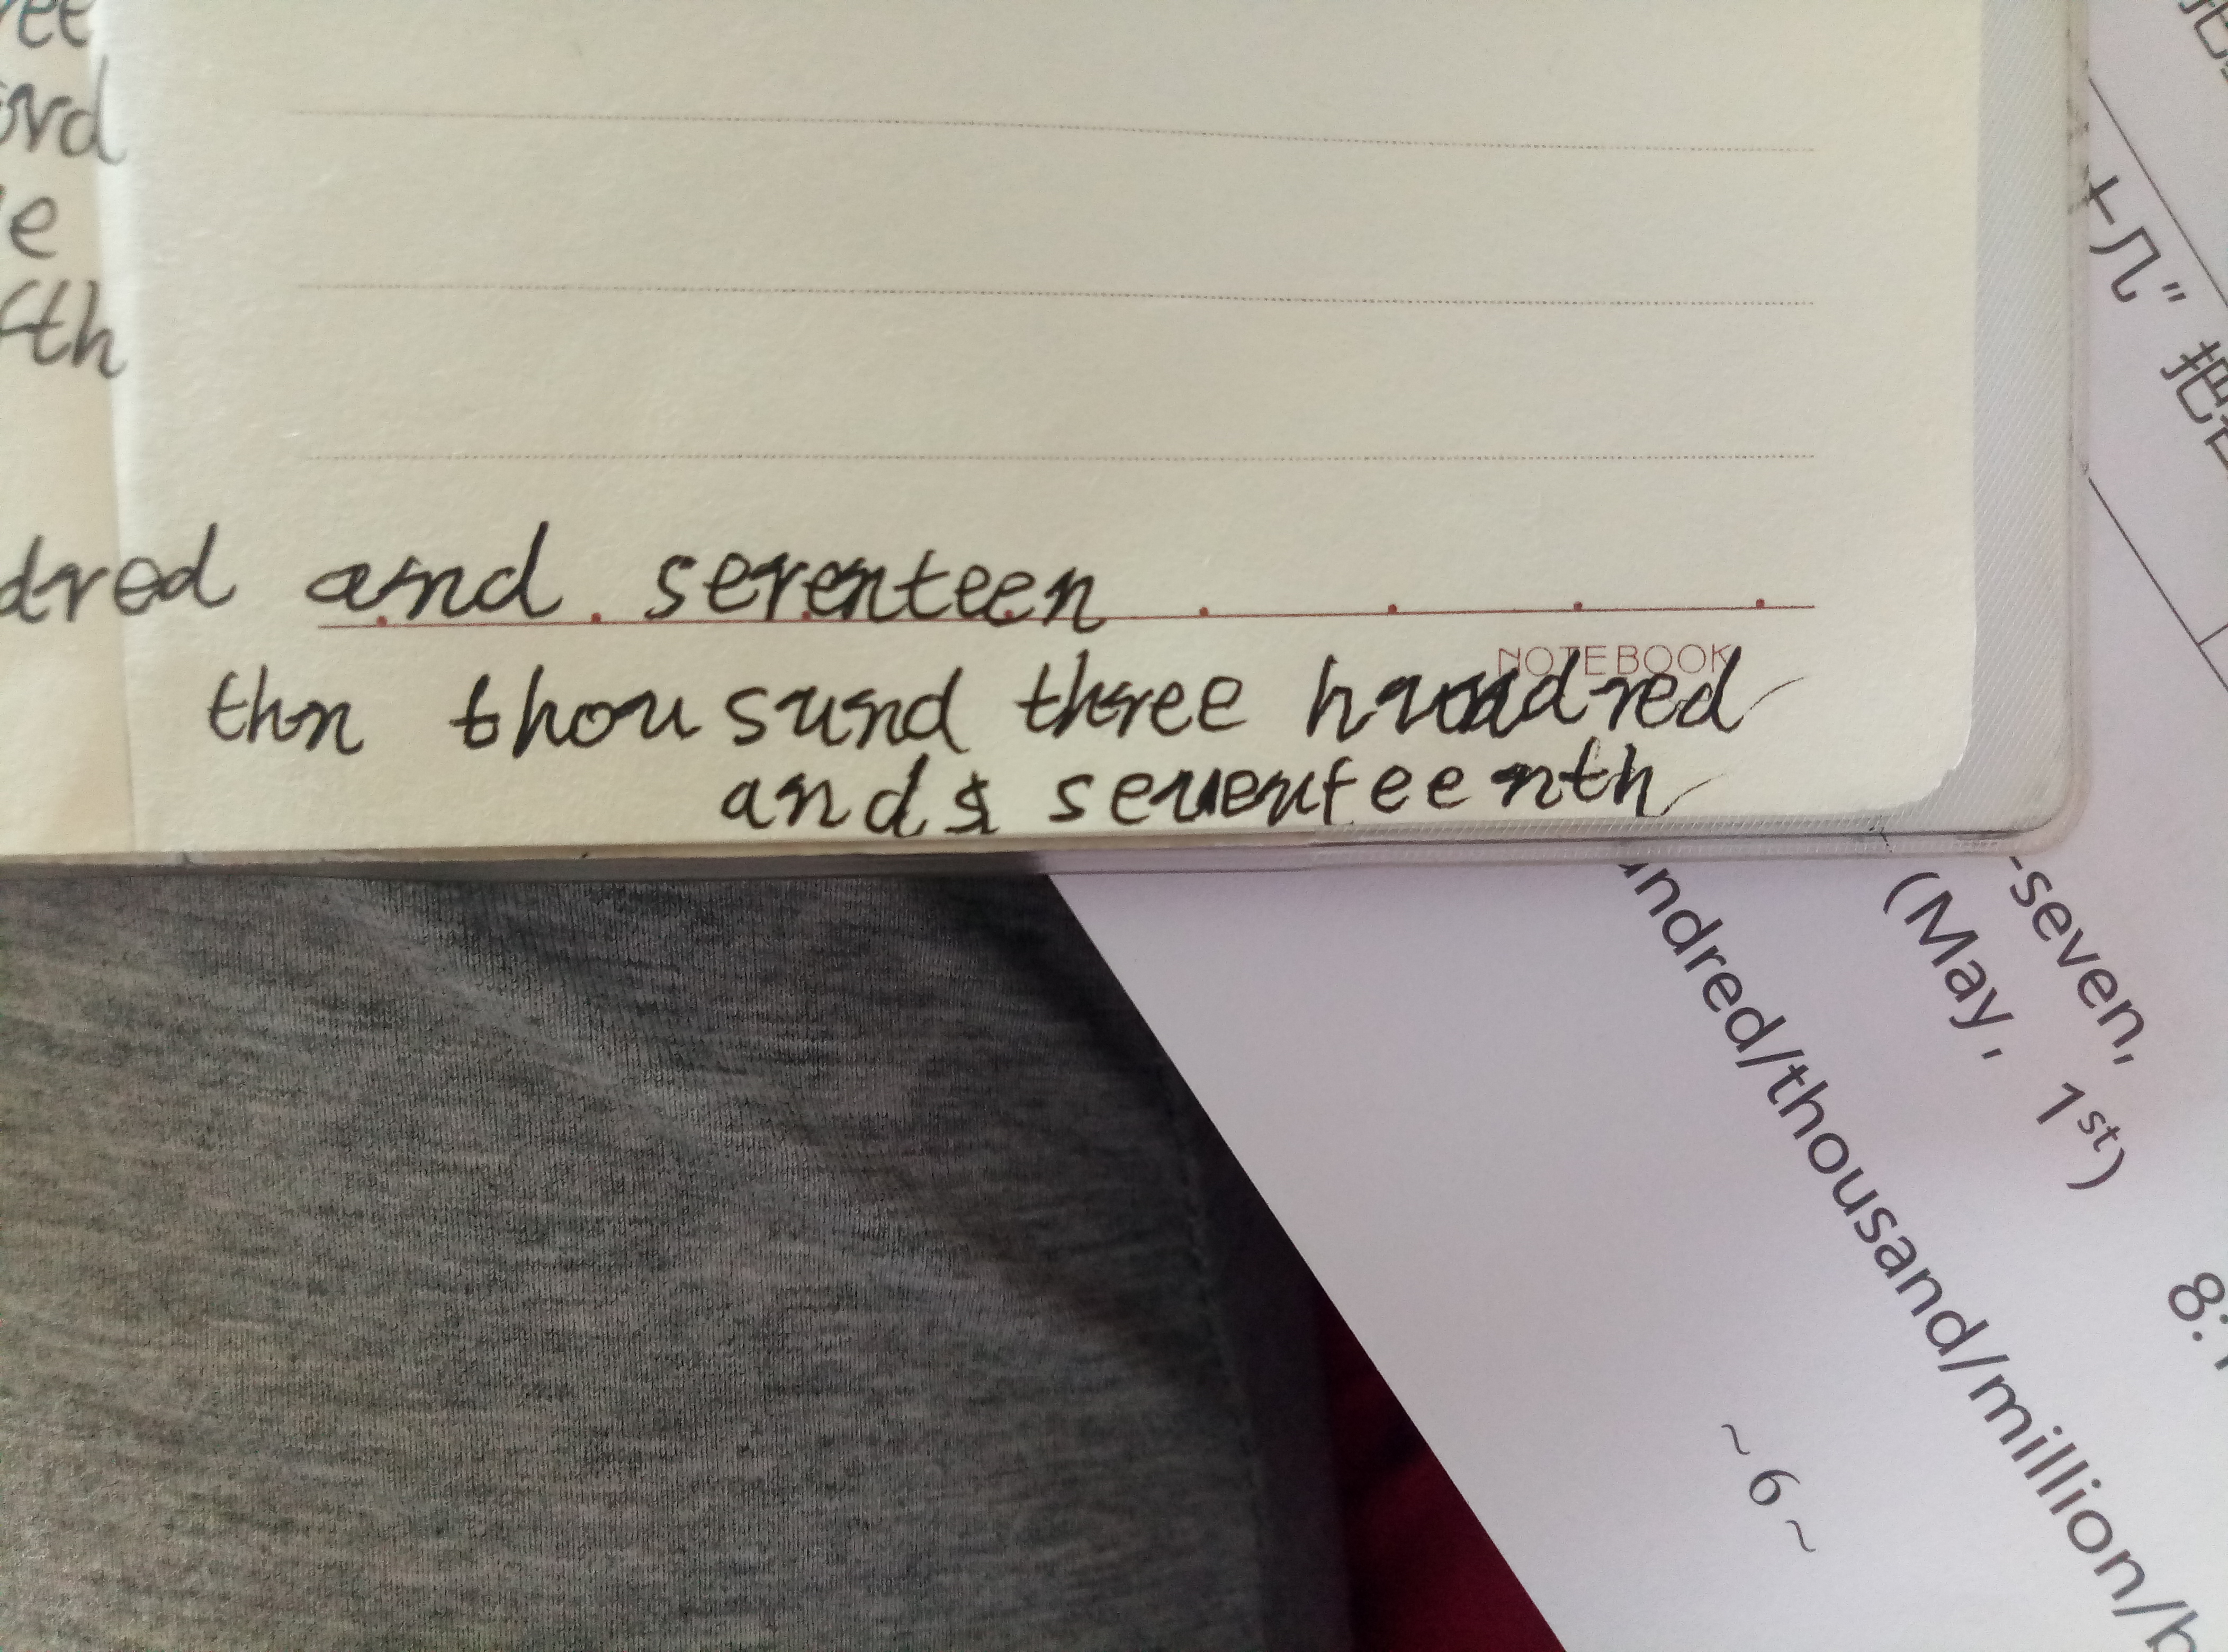 and seventeen
NOTEBOOK
thn thousund three hundred
and seventeenth
十几"
-seven,
(May, 1st)
/thousand/million/
~6~